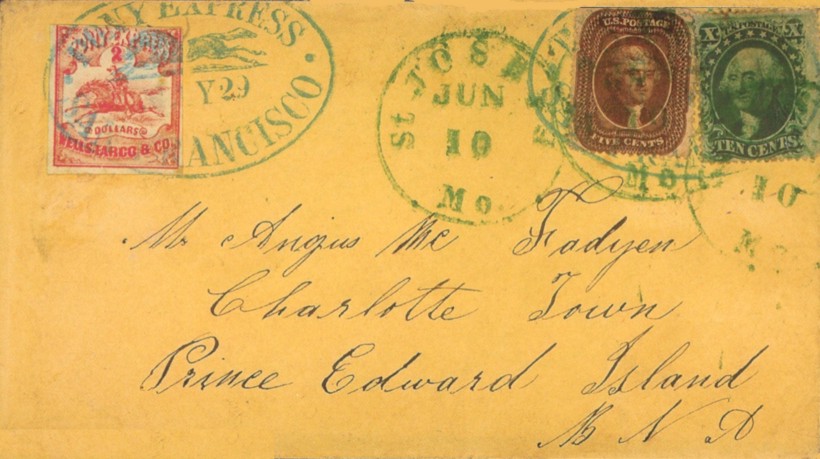 PONY EXPRESS
Y 29
SAN FRANCISCO
PONY EXPRESS
2
DOLLARS
WELLS, FARGO & CO.
St JOSEPH
JUN
10
Mo
U.S. POSTAGE
FIVE CENTS
Mo
X U.S. POSTAGE X
TEN CENTS
10
Mo
Mr Angus Mc Fadyen
Charlotte Town
Prince Edward Island
B N A